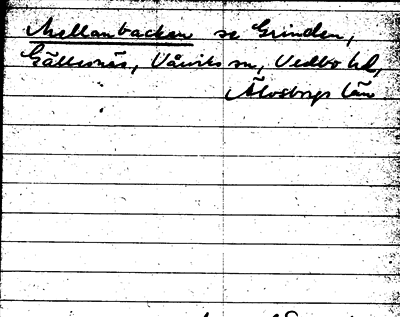 Mellanbacken se Grinden,
Gällesnäs, Vårviks sn, Vedbo hd,
Älvsborgs län